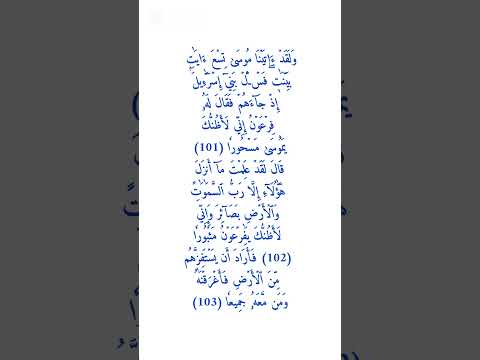 وَلَقَدۡ ءَاتَيۡنَا مُوسَىٰ تِسۡعَ ءَايَٰتِۭ
بَيِّنَٰتٖۖ فَسۡـَٔلۡ بَنِيٓ إِسۡرَٰٓءِيلَ
إِذۡ جَآءَهُمۡ فَقَالَ لَهُۥ
فِرۡعَوۡنُ إِنِّي لَأَظُنُّكَ
يَٰمُوسَىٰ مَسۡحُورٗا (101)
قَالَ لَقَدۡ عَلِمۡتَ مَآ أَنزَلَ
هَٰٓؤُلَآءِ إِلَّا رَبُّ ٱلسَّمَٰوَٰتِ
وَٱلۡأَرۡضِ بَصَآئِرَ وَإِنِّي
لَأَظُنُّكَ يَٰفِرۡعَوۡنُ مَثۡبُورٗا
(102) فَأَرَادَ أَن يَسۡتَفِزَّهُم
مِّنَ ٱلۡأَرۡضِ فَأَغۡرَقۡنَٰهُ
وَمَن مَّعَهُۥ جَمِيعٗا (103)